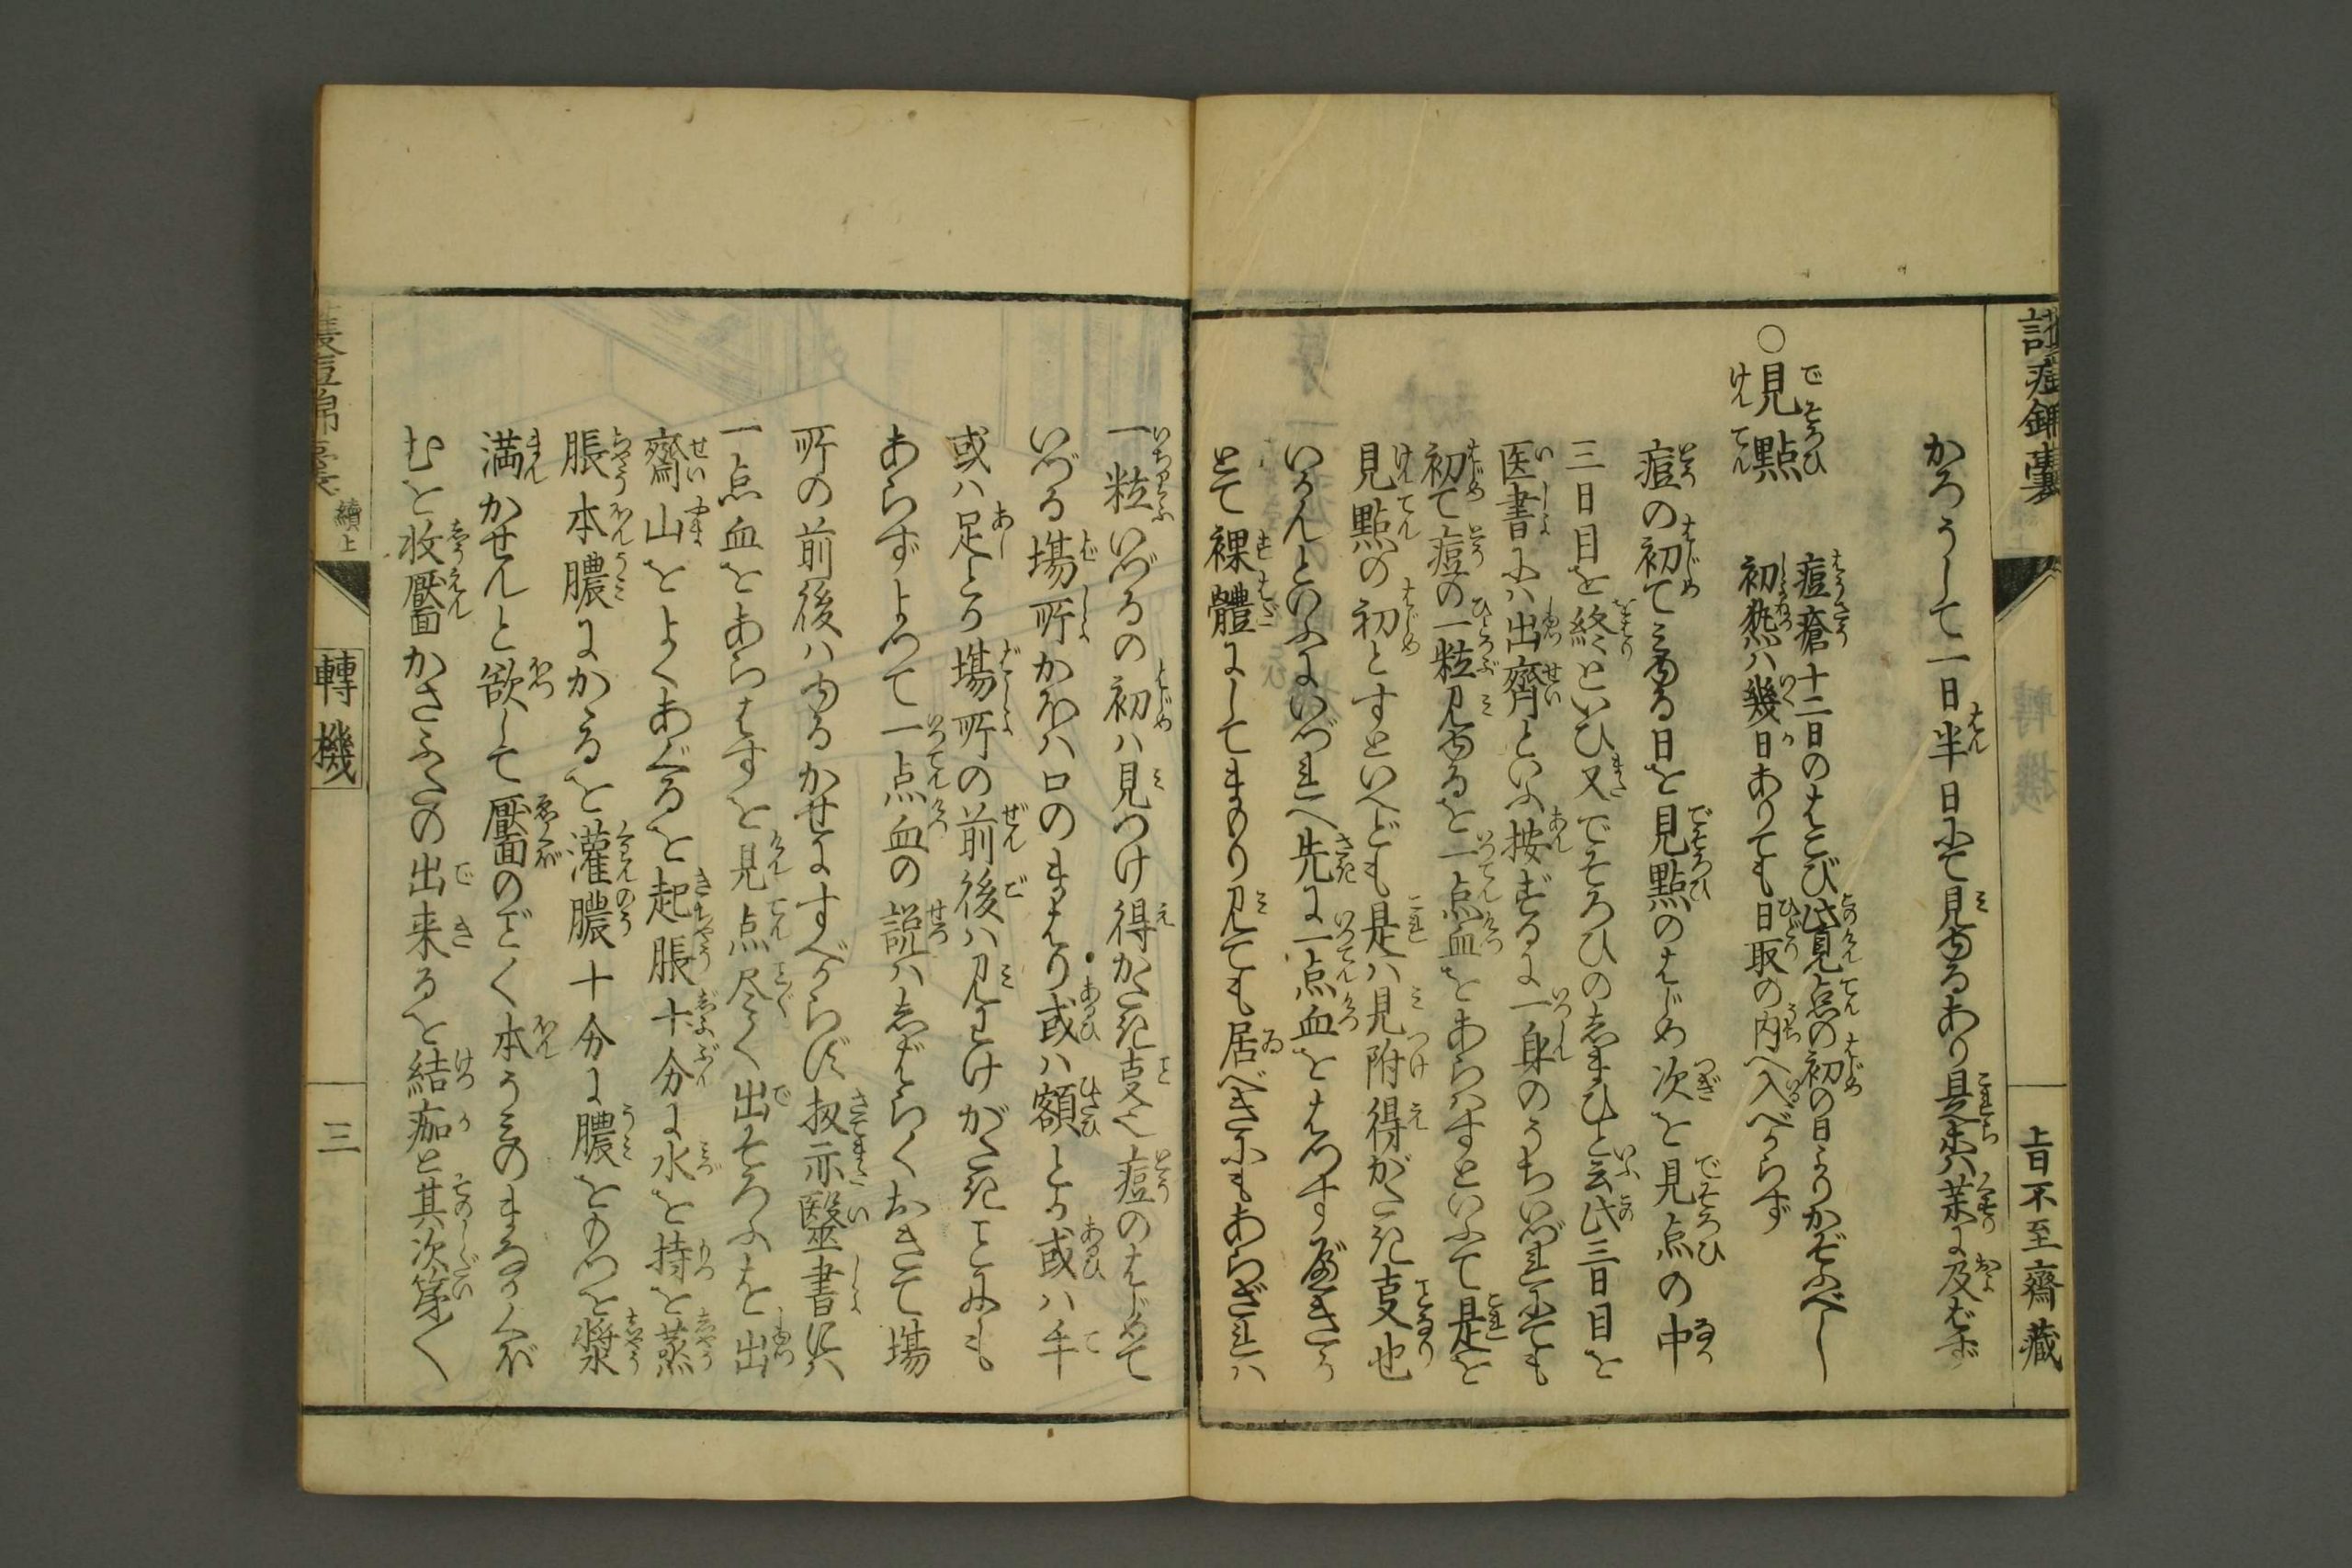 護痘錦囊
上日不至齋藏
かろうして一日半日にて見ゆるあり是等ハ業に及ばず
○見點
痘瘡十二日のはこび此見点の初の日よりかぞふべし
初熱ハ幾日ありても日取の内へ入べからず
痘の初てミゆる日を見點のはじめ次を見点の中
三日目を終といひ又でそろひのしまひと云此三日目を
医書にハ出齊といふ按ずるに一身のうちいづれにても
初て痘の一粒見ゆるを一点血をあらハすといふて是を
見點の初とすといへども是ハ見附得がたき事也
いかんといふにいづれへ先に一点血をはつすべきか
とて裸體にしてまもり見ても居べきにもあらざれハ
一粒いづるの初ハ見つけ得がたき事也痘のはじめて
いづる場所かほハ口のまはり或ハ額とか或ハ手
或ハ足とか場所の前後ハ見わけがたきことにも
あらずよつて一点血の説ハしばらくおきて場
所の前後ハゆるかせにすべからず扨亦醫書にハ
一点血をあらはすを見点尽く出そろふを出
齊山をよくあぐるを起脹十分に水を持を蒸
脹本膿にかゝるを灌膿十分に膿をもつを漿
満かせんと欲して靨のごとく本うミのまゝ
むを收靨かさふたの出来るを結痂と其次第〱
護痘錦囊
續上
轉機
三